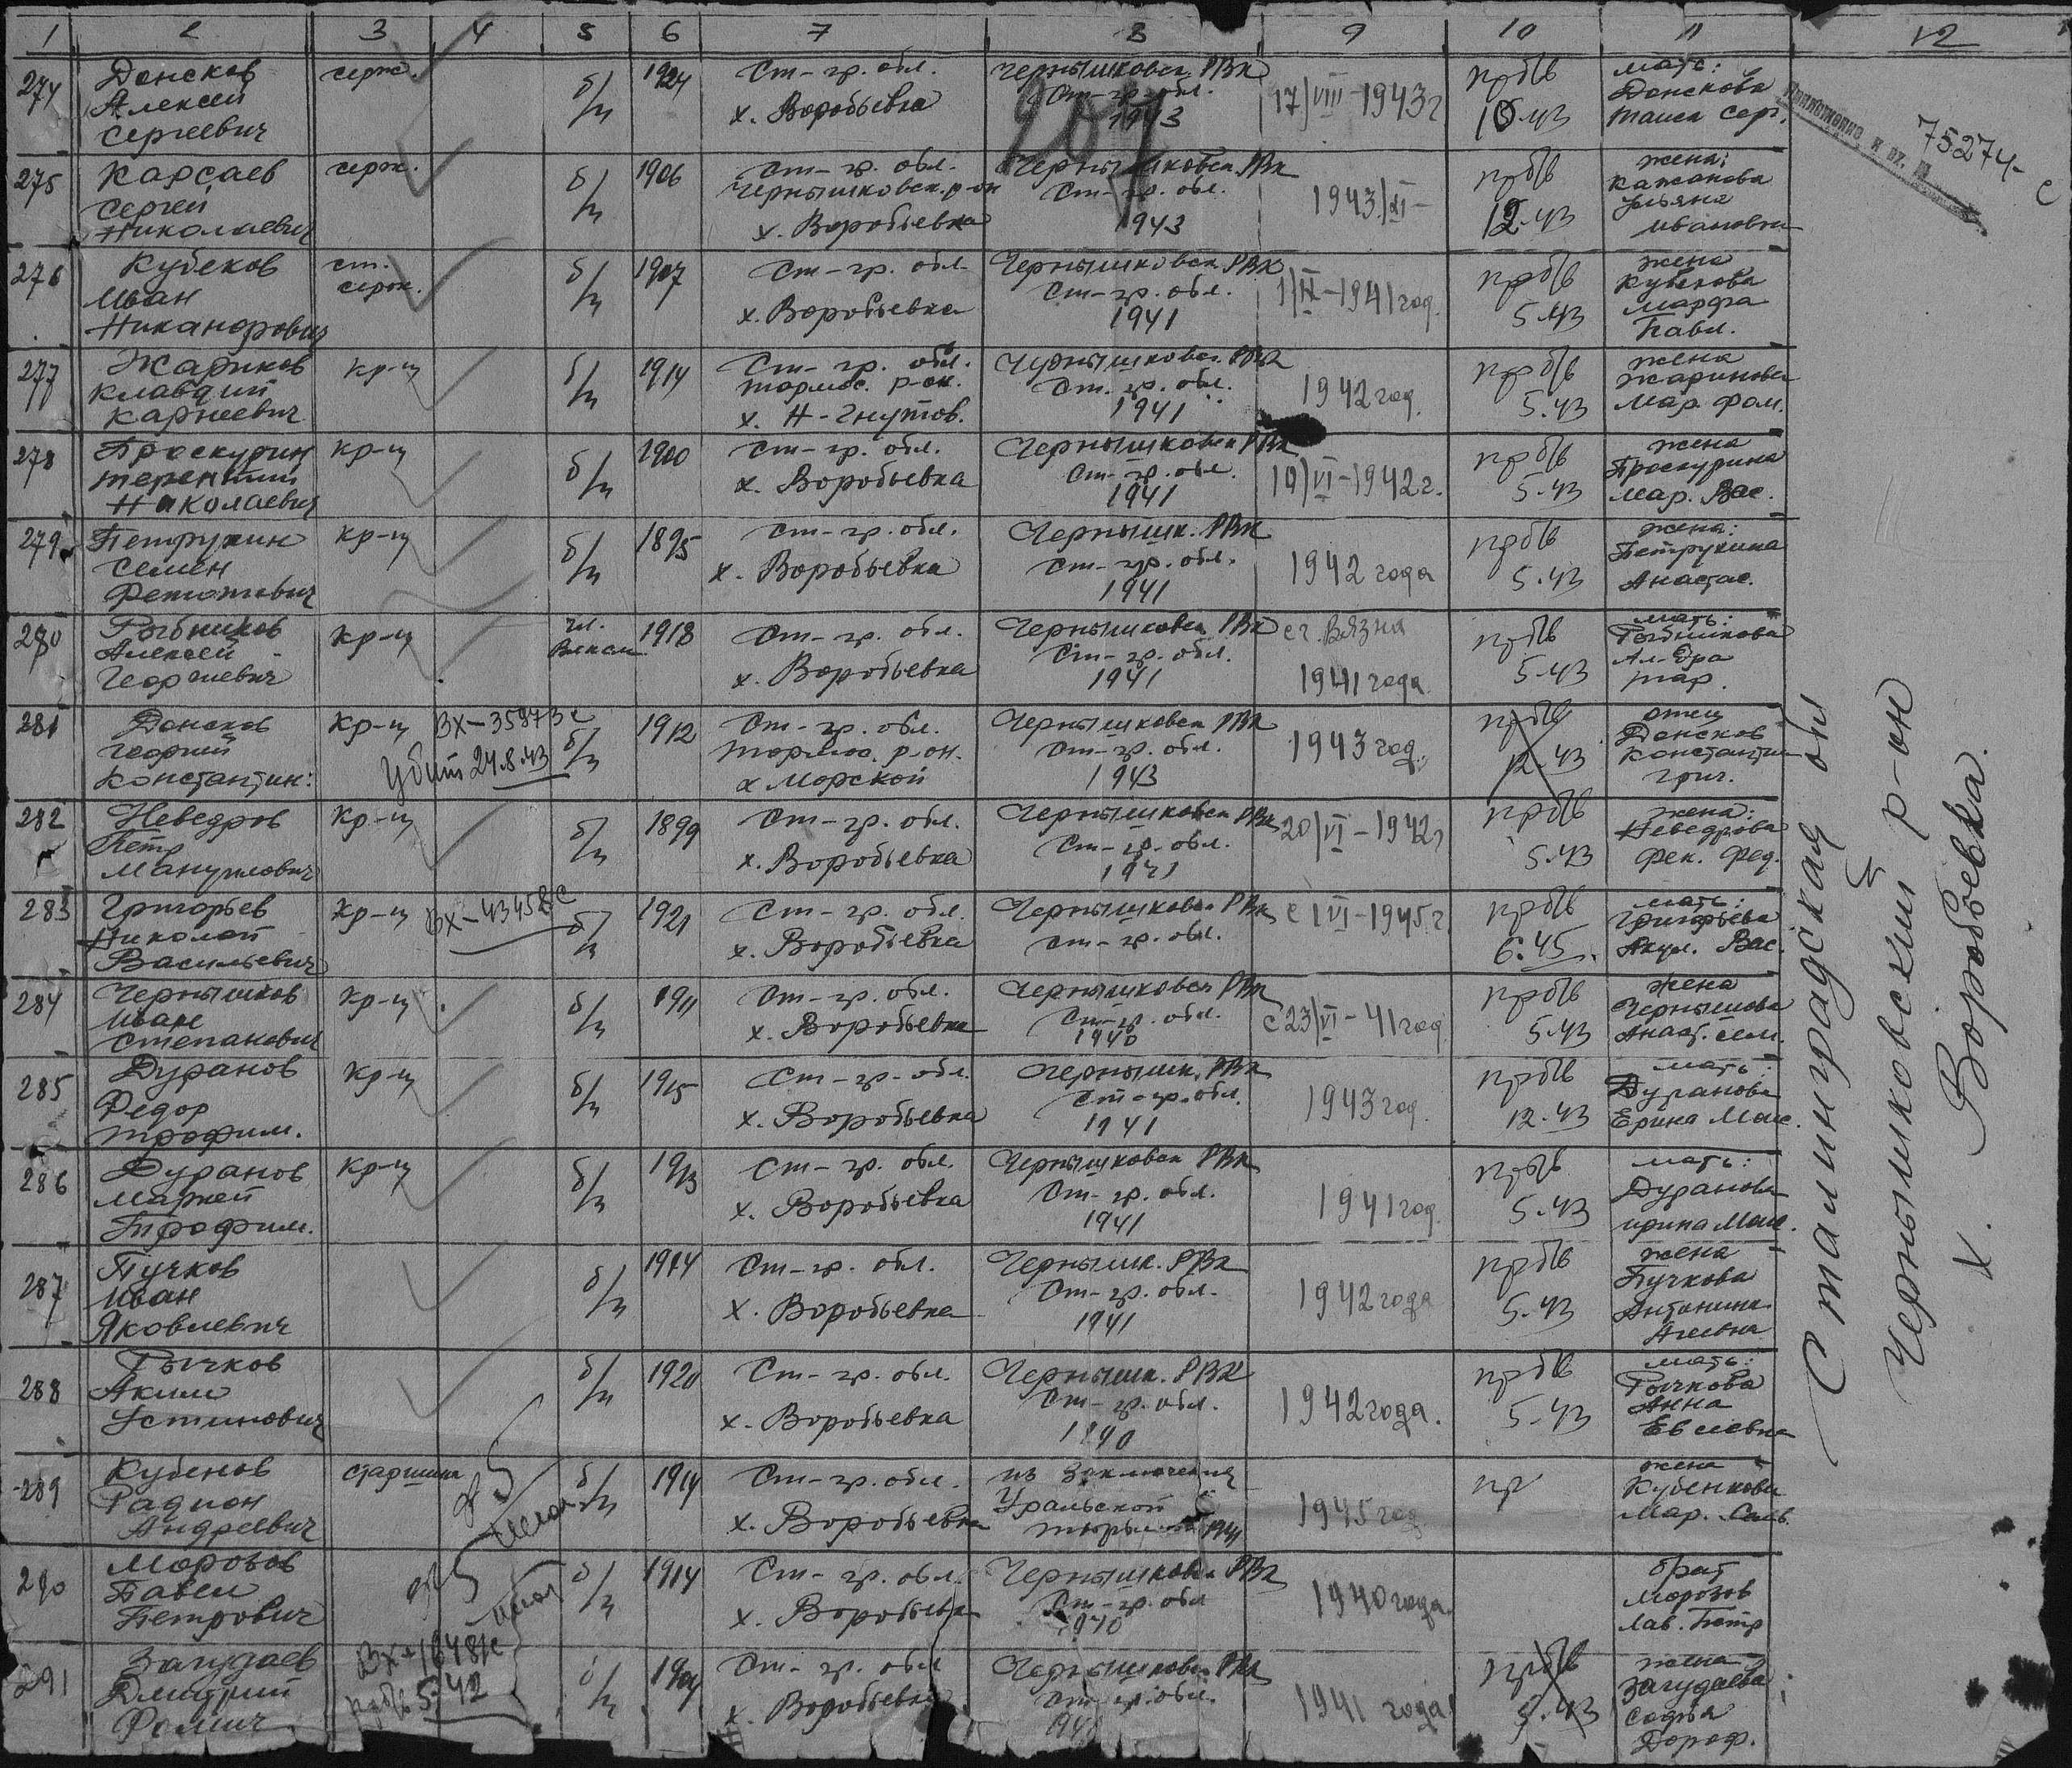 1 2 3 4 5 6 7 8 9 10 11 12
274 Донсков Алексей Сергеевич серж. б/п 1924 Ст-гр. обл. х. Воробьевка Чернышковск. РВК Ст-гр. обл. 1943 17/VIII-1943г прбв 10.43 мать: Донскова Таиса Серг.
207
75274-с
275 Карсаев Сергей Николаевич серж. б/п 1906 Ст-гр. обл. Чернышковск. р-он х. Воробьевка Чернышковск. РВК Ст-гр. обл. 1943 1943/XI- прбв 12.43 жена: Ульяна Ивановна
276 Кубеков Иван Никанорович ст. серж. б/п 1907 Ст-гр. обл. х. Воробьевка Чернышковск РВК Ст-гр. обл. 1941 -1941 год. прбв 5.43 жена Кубекова Марфа Павл.
277 Жариков Клавдий Карнеевич кр-ц б/п 1914 Ст-гр. обл. тормос. р-он. х. Н-Гнутов. Чернышковск. РВК Ст. гр. обл. 1941 1942 год. прбв 5.43 жена Жарикова Мар. Фом.
278 Проскурин Терентий Николаевич кр-ц б/п 1900 Ст-гр. обл. х. Воробьевка Чернышковск РВК Ст-гр. обл 1941 10/VI-1942г. прбв 5.43 жена Проскурина Мар. Вас.
279 Петрухин Семен кр-ц б/п 1895 Ст-гр. обл. х. Воробьевка Чернышк. РВК Ст-гр. обл. 1941 1942 года прбв 5.43 жена: Петрухина Анастас.
280 Рыбников Алексей Георгиевич кр-ц чл. Влксм 1918 Ст-гр. обл. х. Воробьевка Чернышковск РВК Ст-гр. обл. 1941 с г. Вязна 1941 года прбв 5.43 мать: Рыбникова Ал-дра
281 Донсков Георгий Константин: кр-ц Вх-35973с Убит 24.8.43 б/п 1912 Ст-гр. обл. тормос. р-он. х Морской Чернышковск РВК Ст-гр. обл. 1943 1943 год. прбв 12.43 отец Донсков Константин Григ.
282 Неведров Петр Мануилович кр-ц б/п 1899 Ст-гр. обл. х. Воробьевка Чернышковск РВК Ст-гр. обл. 1941 20/VI-1942г прбв 5.43 жена: Неведрова Фек. Фед.
283 Григорьев Николай Васильевич кр-ц Вх-43458с б/п 1921 Ст-гр. обл. х. Воробьевка Чернышковск РВК Ст-гр. обл. с 1 VI-1945г. прбв 6.45 мать: Григорьева Акул. Вас.
284 Чернышков Иван Степанович кр-ц б/п 1911 Ст-гр. обл. х. Воробьевка Чернышковск РВК Ст-гр. обл. 1940 с 23/VI-41 год прбв 5.43 жена Чернышова Анаст. Сем.
285 Дуранов Федор Трофим. кр-ц б/п 1915 Ст-гр. обл. х. Воробьевка Чернышк. РВК Ст-гр. обл. 1941 1943 год. прбв 12.43 мать: Дуранова Ерина Мак.
286 Дуранов Маркей Трофим. кр-ц б/п 1913 Ст-гр. обл. х. Воробьевка Чернышковск РВК Ст-гр. обл. 1941 1941 год. прбв 5.43 мать: Дуранова Ирина Мак.
287 Пучков Иван Яковлевич б/п 1914 Ст-гр. обл. х. Воробьевка Чернышк. РВК Ст-гр. обл. 1941 1942 года прбв 5.43 жена Пучкова Антонина
288 Рычков Аким Устинович б/п 1920 Ст-гр. обл. х. Воробьевка Чернышк. РВК Ст-гр. обл. 1940 1942 года. прбв 5.43 мать: Рычкова Анна
289 Кубенов Радион Андреевич старшина б/п 1914 Ст-гр. обл. х. Воробьевка из заключения Уральской 1941 1945 год пр жена Кубенкова Мар.
290 Морозов Павел Петрович б/п 1914 Ст-гр. обл. х. Воробьевка Чернышковск РВК Ст-гр. обл 1940 1940 года. брат Морозов Лав. Петр
291 Загудаев Дмитрий Фомич прбв 5.42 б/п Ст-гр. обл х. Воробьевка Чернышковск РВК Ст-гр. обл. 1941 года прбв 5.43 жена Загудаева Софья Дороф.
Сталинградская обл
Чернышковский р-он
х. Воробьевка.